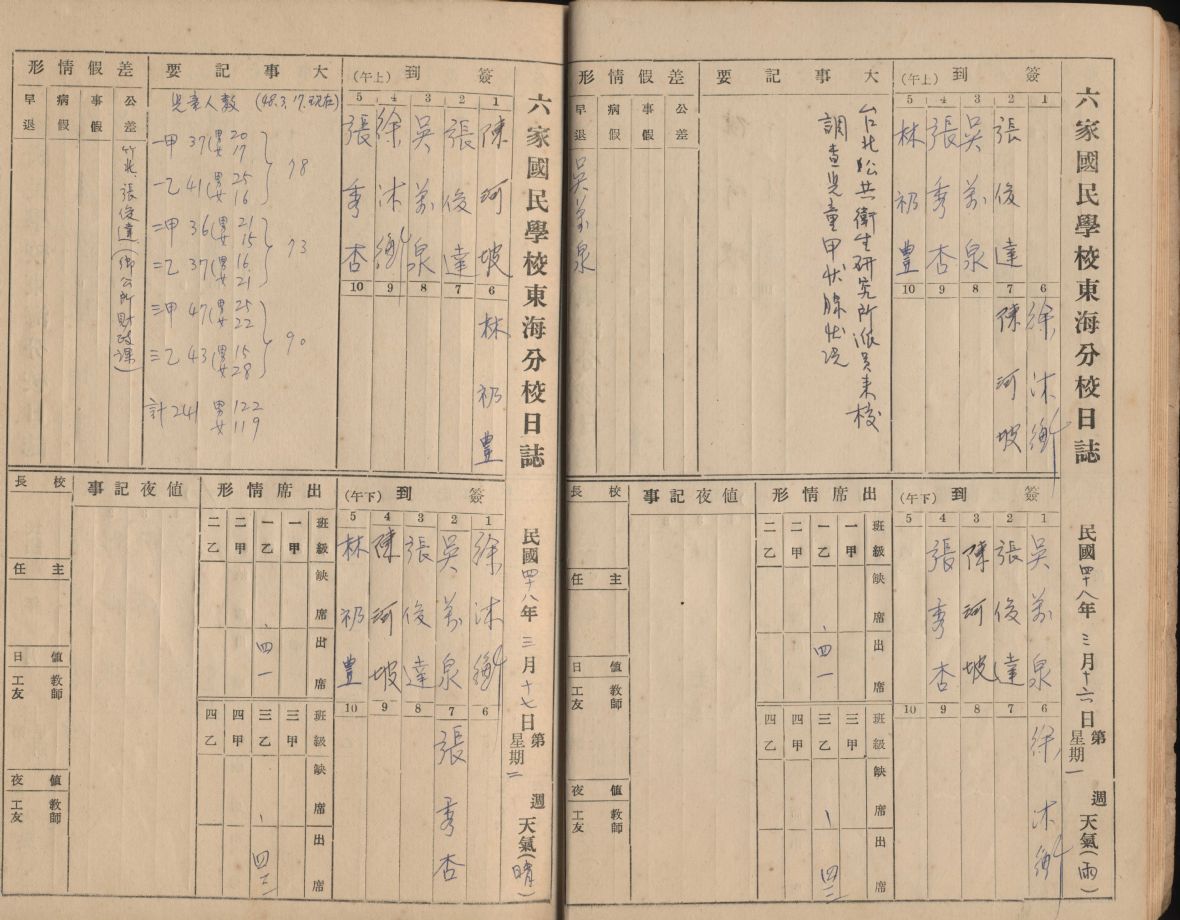 六家國民學校東海分校日誌
民國四十八年三月十六日
第 週
星期一
天氣(雨)
簽到(上午)
1
2 張俊達
3 吳萬泉
4 張秀杏
5 林礽豊
6 徐沐衡
7 陳河坡
8
9
10
大事記要
台北公共衛生研究所派員來校
調查兒童甲狀腺狀況
差假情形
公差
事假
病假
早退 吳萬泉
簽到(下午)
1 吳萬泉
2 張俊達
3 陳河坡
4 張秀杏
5
6 徐沐衡
7
8
9
10
出席情形
班級 缺席 出席
一甲
一乙 、 四一
二甲
二乙
班級 缺席 出席
三甲
三乙 、 四二
四甲
四乙
値夜記事
校長
主任
値日 教師 工友
値夜 教師 工友
六家國民學校東海分校日誌
民國四十八年三月十七日
第 週
星期二
天氣(晴)
簽到(上午)
1 陳河坡
2 張俊達
3 吳萬泉
4 徐沐衡
5 張秀杏
6 林礽豊
7
8
9
10
大事記要
兒童人數 (48.3.17.現在)
一甲 37 (男20 女17
一乙 41 (男25 女16
78
二甲 36 (男21 女15
二乙 37 (男16 女21
73
三甲 47 (男25 女22
三乙 43 (男15 女28
90
計241 男122 女119
差假情形
公差 竹北張俊達(鄉公所財政課)
事假
病假
早退
簽到(下午)
1 徐沐衡
2 吳萬泉
3 張俊達
4 陳河坡
5 林礽豊
6
7 張秀杏
8
9
10
出席情形
班級 缺席 出席
一甲
一乙 、 四一
二甲
二乙
班級 缺席 出席
三甲
三乙 、 四二
四甲
四乙
値夜記事
校長
主任
値日 教師 工友
値夜 教師 工友